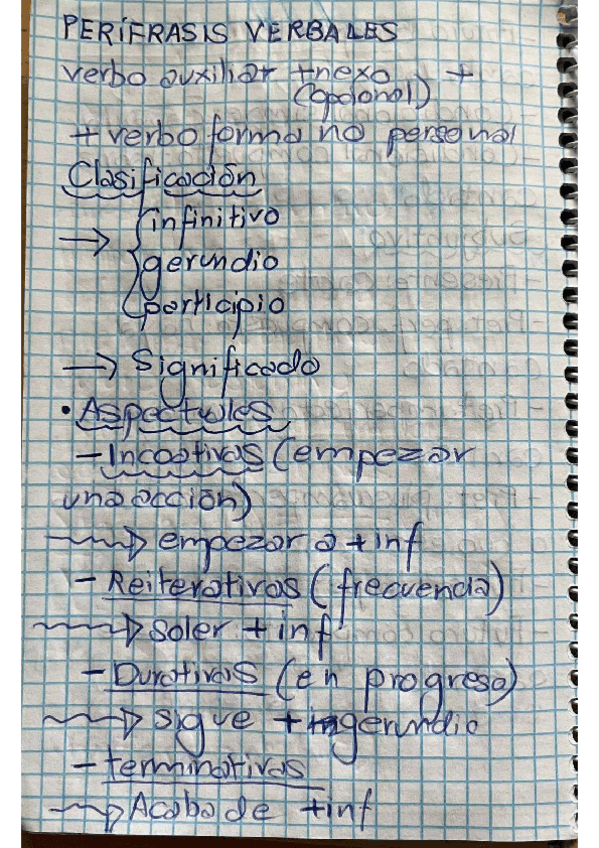 PERÍFRASIS VERBALES
verbo auxiliar + nexo +
(opcional)
+ verbo forma no personal
Clasificación
→ { infinitivo
gerundio
participio
→ Significado
• Aspectuales
- Incoativas (empezar
una acción)
→ empezar a + inf
- Reiterativas (frecuencia)
→ soler + inf
- Durativas (en progreso)
→ sigue + gerundio
- terminativas
→ Acaba de + inf